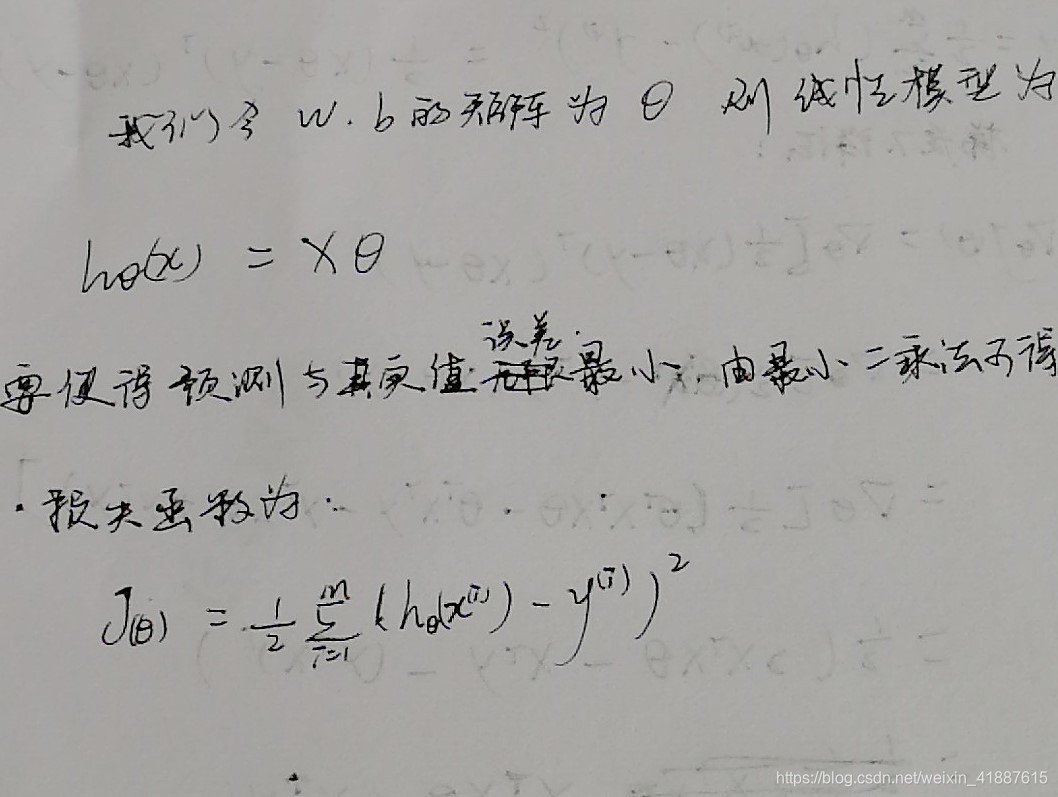 我们令 w.b的矩阵为 θ 则 线性模型为
hθ(x) = Xθ
误差.
要使得预测与真实值最小,由最小二乘法可得
·损失函数为:
J(θ) = 1/2 ∑_{i=1}^{m} (hθ(x^{(i)}) - y^{(i)})^2
https://blog.csdn.net/weixin_41887615